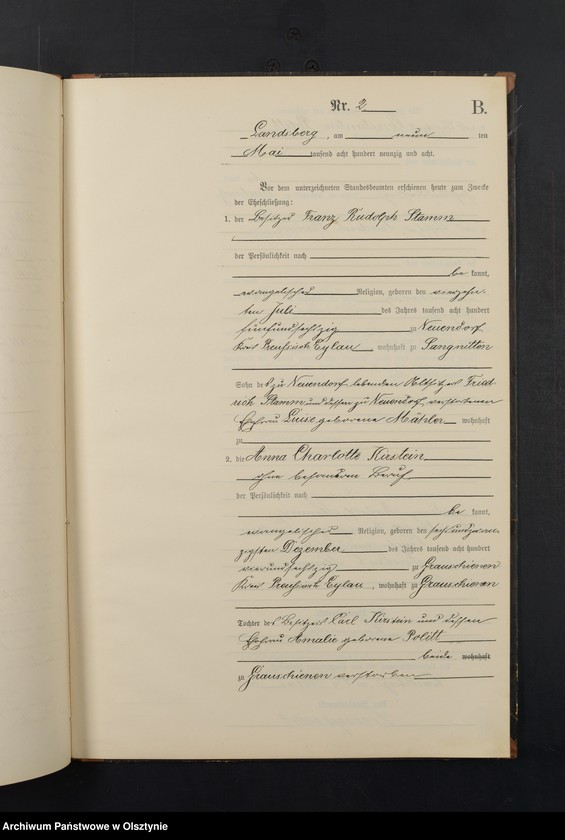 Nr. 2.
B.
Landsberg, am neun ten
Mai tausend acht hundert neunzig und acht.
Vor dem unterzeichneten Standesbeamten erschienen heute zum Zwecke
der Eheschließung:
1. der Besitzer Franz Rudolph Stamm
der Persönlichkeit nach
be kannt,
evangelischer Religion, geboren den vierzehn-
ten Juli des Jahres tausend acht hundert
fünfundsechzig zu Neuendorf
Kreis Preußisch Eylau wohnhaft zu Sangnitten
Sohn des zu Neuendorf lebenden Altsitzers Fried
rich Stamm und dessen zu Neuendorf verstorbenen
Ehefrau Luise geborene Mähler wohnhaft
zu
2. die Anna Charlotte Kirstein
ohne besonderen Beruf
der Persönlichkeit nach
be kannt,
evangelischer Religion, geboren den sechsundzwan-
zigsten Dezember des Jahres tausend acht hundert
vierundsechzig zu Grauschienen
Kreis Preußisch Eylau, wohnhaft zu Grauschienen
Tochter des Besitzers Carl Kirstein und dessen
Ehefrau Amalie geborene Politt
beide wohnhaft
zu Grauschienen verstorben
Archiwum Państwowe w Olsztynie